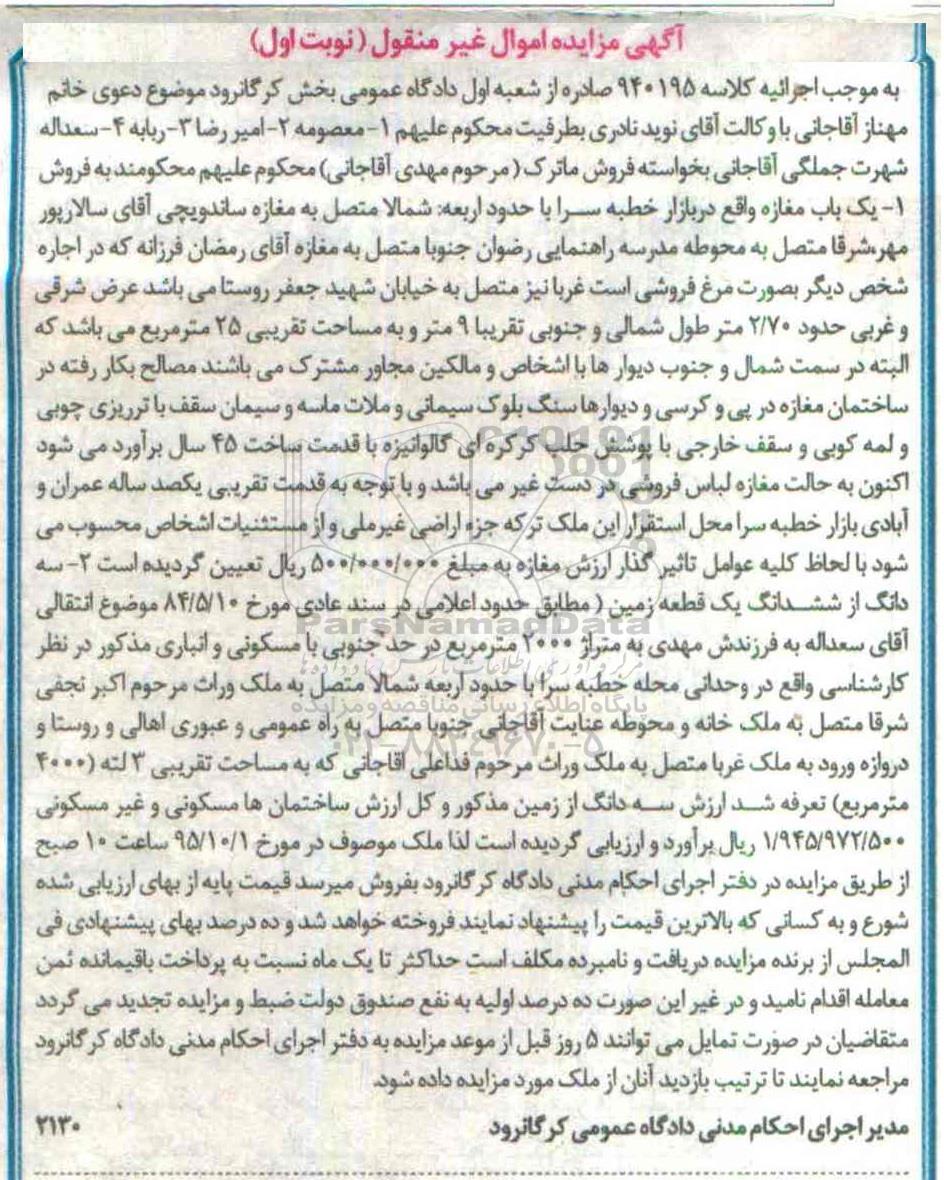 آگهی مزایده اموال غیر منقول (نوبت اول)
به موجب اجرائیه کلاسه ۹۴۰۱۹۵ صادره از شعبه اول دادگاه عمومی بخش کرگانرود موضوع دعوی خانم
مهناز آقاجانی با وکالت آقای نوید نادری بطرفیت محکوم علیهم ۱-معصومه ۲-امیر رضا ۳-ربابه ۴-سعداله
شهرت جملگی آقاجانی بخواسته فروش ماترک (مرحوم مهدی آقاجانی) محکوم علیهم محکومند به فروش
۱- یک باب مغازه واقع دربازار خطبه سرا با حدود اربعه: شمالا متصل به مغازه ساندویچی آقای سالارپور
مهر،شرقا متصل به محوطه مدرسه راهنمایی رضوان جنوبا متصل به مغازه آقای رمضان فرزانه که در اجاره
شخص دیگر بصورت مرغ فروشی است غربا نیز متصل به خیابان شهید جعفر روستا می باشد عرض شرقی
و غربی حدود ۲/۷۰ متر طول شمالی و جنوبی تقریبا ۹ متر و به مساحت تقریبی ۲۵ مترمربع می باشد که
البته در سمت شمال و جنوب دیوار ها با اشخاص و مالکین مجاور مشترک می باشند مصالح بکار رفته در
ساختمان مغازه در پی و کرسی و دیوارها سنگ بلوک سیمانی و ملات ماسه و سیمان سقف با ترریزی چوبی
و لمه کوبی و سقف خارجی با پوشش حلب کرکره ای گالوانیزه با قدمت ساخت ۴۵ سال برآورد می شود
اکنون به حالت مغازه لباس فروشی در دست غیر می باشد و با توجه به قدمت تقریبی یکصد ساله عمران و
آبادی بازار خطبه سرا محل استقرار این ملک ترکه جزء اراضی غیرملی و از مستثنیات اشخاص محسوب می
شود با لحاظ کلیه عوامل تاثیر گذار ارزش مغازه به مبلغ ۵۰۰/۰۰۰/۰۰۰ ریال تعیین گردیده است ۲- سه
دانگ از ششدانگ یک قطعه زمین (مطابق حدود اعلامی در سند عادی مورخ ۸۴/۵/۱۰ موضوع انتقالی
آقای سعداله به فرزندش مهدی به متراژ ۲۰۰۰ مترمربع در حد جنوبی با مسکونی و انباری مذکور در نظر
کارشناسی واقع در وحدانی محله خطبه سرا با حدود اربعه شمالا متصل به ملک وراث مرحوم اکبر نجفی
شرقا متصل به ملک خانه و محوطه عنایت آقاجانی جنوبا متصل به راه عمومی و عبوری اهالی و روستا و
دروازه ورود به ملک غربا متصل به ملک وراث مرحوم فداعلی آقاجانی که به مساحت تقریبی ۳ لته (۴۰۰۰
مترمربع) تعرفه شد ارزش سه دانگ از زمین مذکور و کل ارزش ساختمان ها مسکونی و غیر مسکونی
۱/۹۴۵/۹۷۲/۵۰۰ ریال برآورد و ارزیابی گردیده است لذا ملک موصوف در مورخ ۹۵/۱۰/۱ ساعت ۱۰ صبح
از طریق مزایده در دفتر اجرای احکام مدنی دادگاه کرگانرود بفروش میرسد قیمت پایه از بهای ارزیابی شده
شورع و به کسانی که بالاترین قیمت را پیشنهاد نمایند فروخته خواهد شد و ده درصد بهای پیشنهادی فی
المجلس از برنده مزایده دریافت و نامبرده مکلف است حداکثر تا یک ماه نسبت به پرداخت باقیمانده ثمن
معامله اقدام نامید و در غیر این صورت ده درصد اولیه به نفع صندوق دولت ضبط و مزایده تجدید می گردد
متقاضیان در صورت تمایل می توانند ۵ روز قبل از موعد مزایده به دفتر اجرای احکام مدنی دادگاه کرگانرود
مراجعه نمایند تا ترتیب بازدید آنان از ملک مورد مزایده داده شود.
مدیر اجرای احکام مدنی دادگاه عمومی کرگانرود ۲۱۳۰
ParsNamadData
پایگاه اطلاع رسانی مناقصه و مزایده
۰۲۱-۸۸۳۴۹۶۷۰-۵